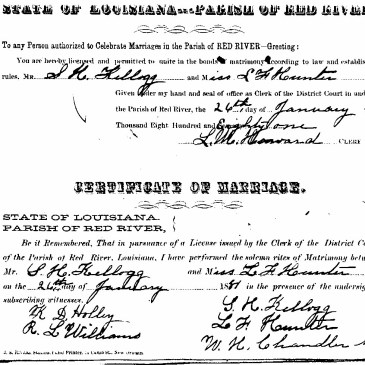 STATE OF LOUISIANA PARISH OF RED RIVER
To any Person authorized to Celebrate Marriages in the Parish of RED RIVER—Greeting:
You are hereby licensed and permitted to quite in the bonds matrimony according to law and establis
rules. MR. S. H. Kellogg and Miss L F Hunter
Given under my hand and seal of office as Clerk of the District Court in
the Parish of Red River, the 26th day of January
Thousand Eight Hundred and Eighty one
CLERK
CERTIFICATE OF MARRIAGE.
STATE OF LOUISIANA.
PARISH OF RED RIVER,
Be it Remembered, That in pursuance of a License issued by the Clerk of the District Co
of the Parish of Red River, Louisiana, I have performed the solemn rites of Matrimony betw
Mr. S. H. Kellogg and Miss L. F. Hunter
on the 26th day of January 1881 in the presence of the undersig
subscribing witnesses.
S. H. Kellogg
K D Holley
L F Hunter
R. L Williams
W. H. Chandler